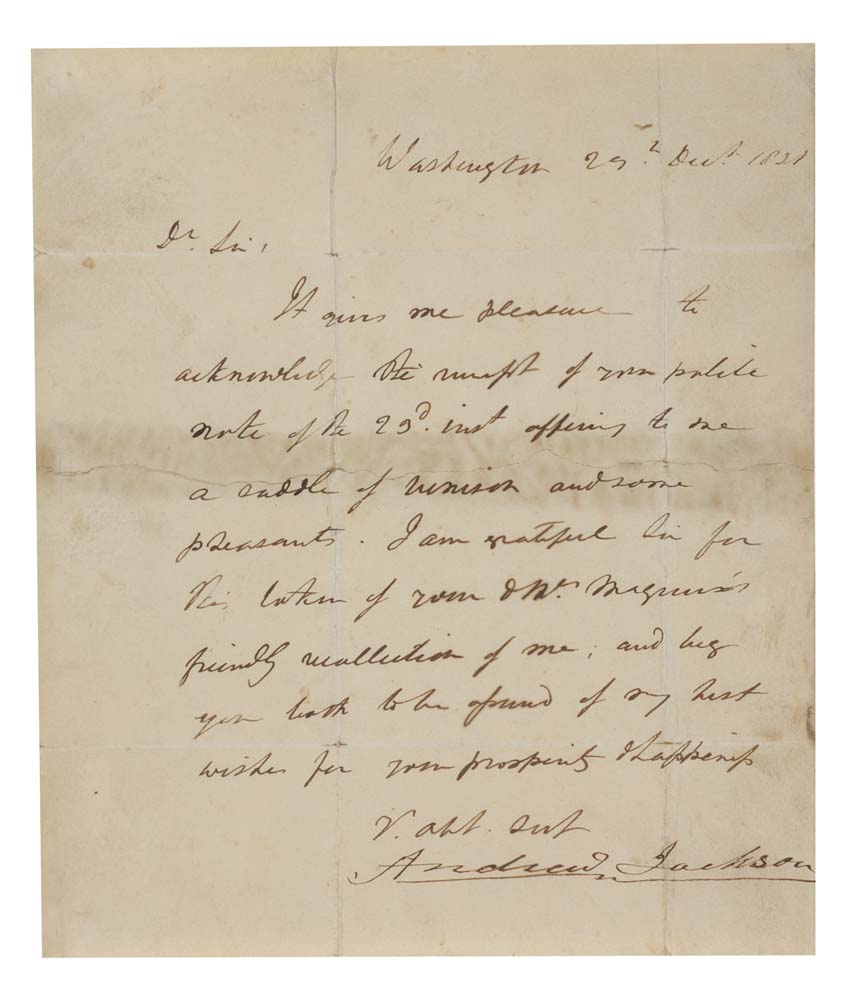 Washington 29th Decr. 1821
Dr. Sir,
It gives me pleasure to
acknowledge the receipt of your polite
note of the 23d. inst offering to me
a saddle of venison and some
pheasants. I am grateful Sir for
this token of your & Mr. Maguire's
friendly recollection of me; and beg
you both to be assured of my best
wishes for your prosperity & happiness
V. obt. svt
Andrew Jackson